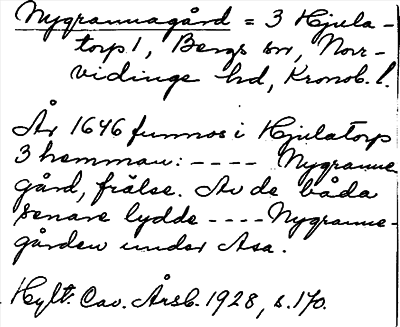 Nygrannagård = 3 Hjula-
torp 1, Bergs sn, Norr-
vidinge hd, Kronob. l.
År 1646 funnos i Hjulatorp
3 hemman: ---- Nygranne
gård, frälse. Av de båda
senare lydde ---- Nygranne-
gården under Asa.
Hylt. Cav. Årsb. 1928, s. 170.